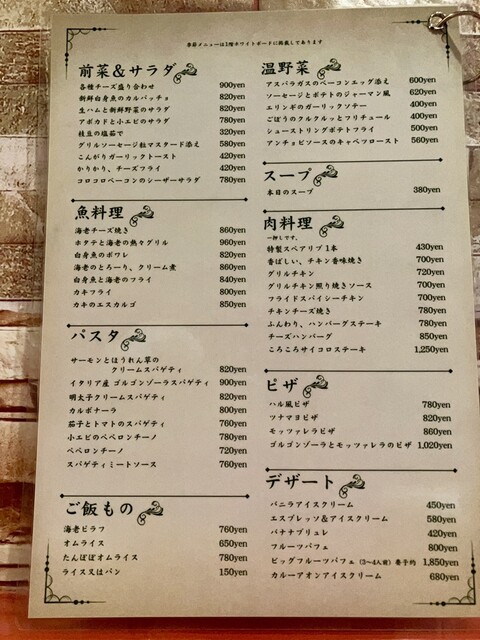 季節メニューは1階ホワイトボードに掲載してあります
前菜&サラダ
各種チーズ盛り合わせ 900yen
新鮮白身魚のカルパッチョ 820yen
生ハムと新鮮野菜のサラダ 820yen
アボカドと小エビのサラダ 780yen
枝豆の塩茹で 320yen
グリルソーセージ粒マスタード添え 580yen
こんがりガーリックトースト 420yen
かりかり、チーズフライ 420yen
コロコロベーコンのシーザーサラダ 780yen
魚料理
海老チーズ焼き 860yen
ホタテと海老の熱々グリル 960yen
白身魚のポワレ 820yen
海老のとろーり、クリーム煮 860yen
白身魚と海老のフライ 840yen
カキフライ 800yen
カキのエスカルゴ 850yen
パスタ
サーモンとほうれん草の
クリームスパゲティ 820yen
イタリア産 ゴルゴンゾーラスパゲティ 900yen
明太子クリームスパゲティ 820yen
カルボナーラ 800yen
茄子とトマトのスパゲティ 760yen
小エビのペペロンチーノ 780yen
ペペロンチーノ 720yen
スパゲティミートソース 760yen
ご飯もの
海老ピラフ 760yen
オムライス 650yen
たんぽぽオムライス 780yen
ライス又はパン 150yen
温野菜
アスパラガスのベーコンエッグ添え 600yen
ソーセージとポテトのジャーマン風 620yen
エリンギのガーリックソテー 400yen
ごぼうのクルクルッとフリチュール 400yen
シューストリングポテトフライ 500yen
アンチョビソースのキャベツロースト 560yen
スープ
本日のスープ 380yen
肉料理
一押しです。
特製スペアリブ1本 430yen
香ばしい、チキン香味焼き 700yen
グリルチキン 720yen
グリルチキン照り焼きソース 700yen
フライドスパイシーチキン 700yen
チキンチーズ焼き 780yen
ふんわり、ハンバーグステーキ 780yen
チーズハンバーグ 850yen
ころころサイコロステーキ 1,250yen
ピザ
ハル風ピザ 780yen
ツナマヨピザ 820yen
モッツァレラピザ 860yen
ゴルゴンゾーラとモッツァレラのピザ 1,020yen
デザート
バニラアイスクリーム 450yen
エスプレッソ&アイスクリーム 580yen
バナナブリュレ 420yen
フルーツパフェ 800yen
ビッグフルーツパフェ (3〜4人前) 要予約 1,850yen
カルーアオンアイスクリーム 680yen